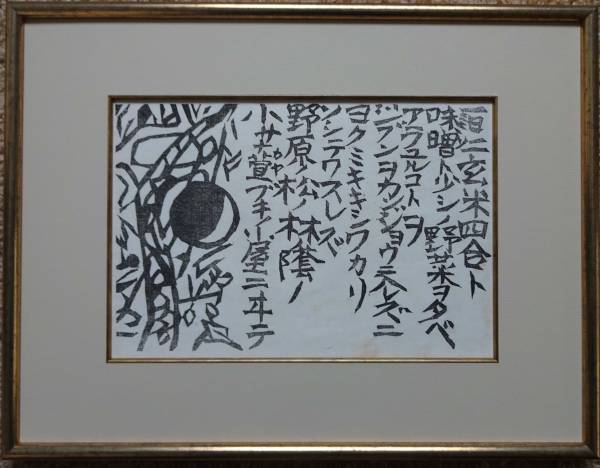 一日ニ玄米四合ト
味噌ト少シノ野菜ヲタベ
アラユルコトヲ
ジブンヲカンジョウニ入レズニ
ヨクミキキシワカリ
ソシテワスレズ
野原ノ松ノ林ノ蔭ノ
小サナ萱ブキノ小屋ニヰテ